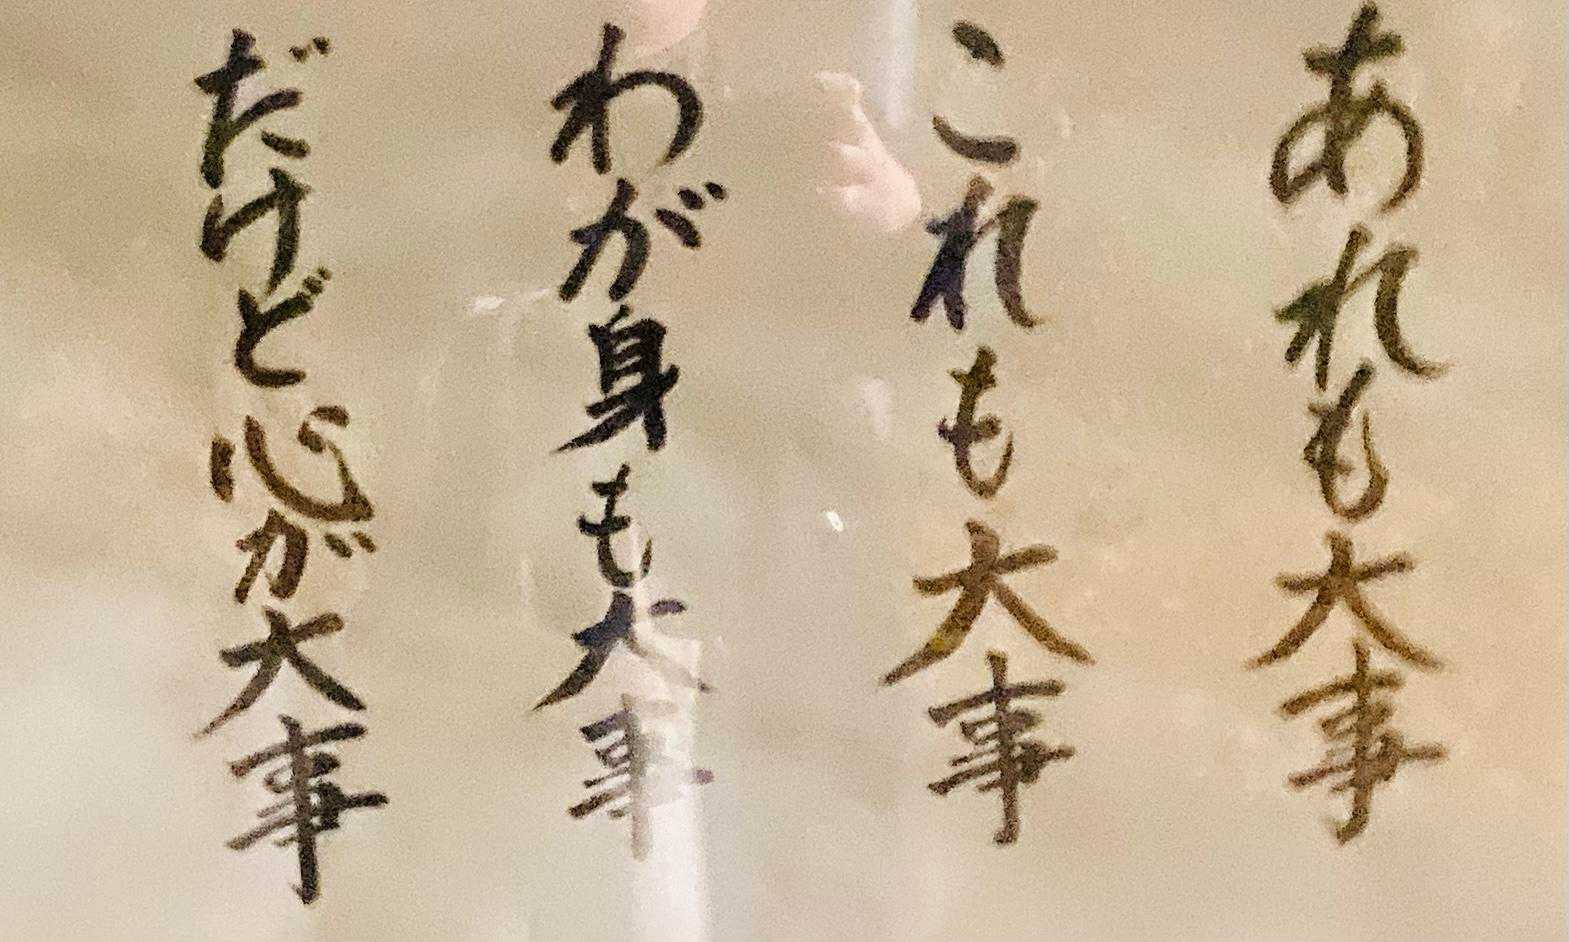 あれも大事
これも大事
わが身も大事
だけど心が大事